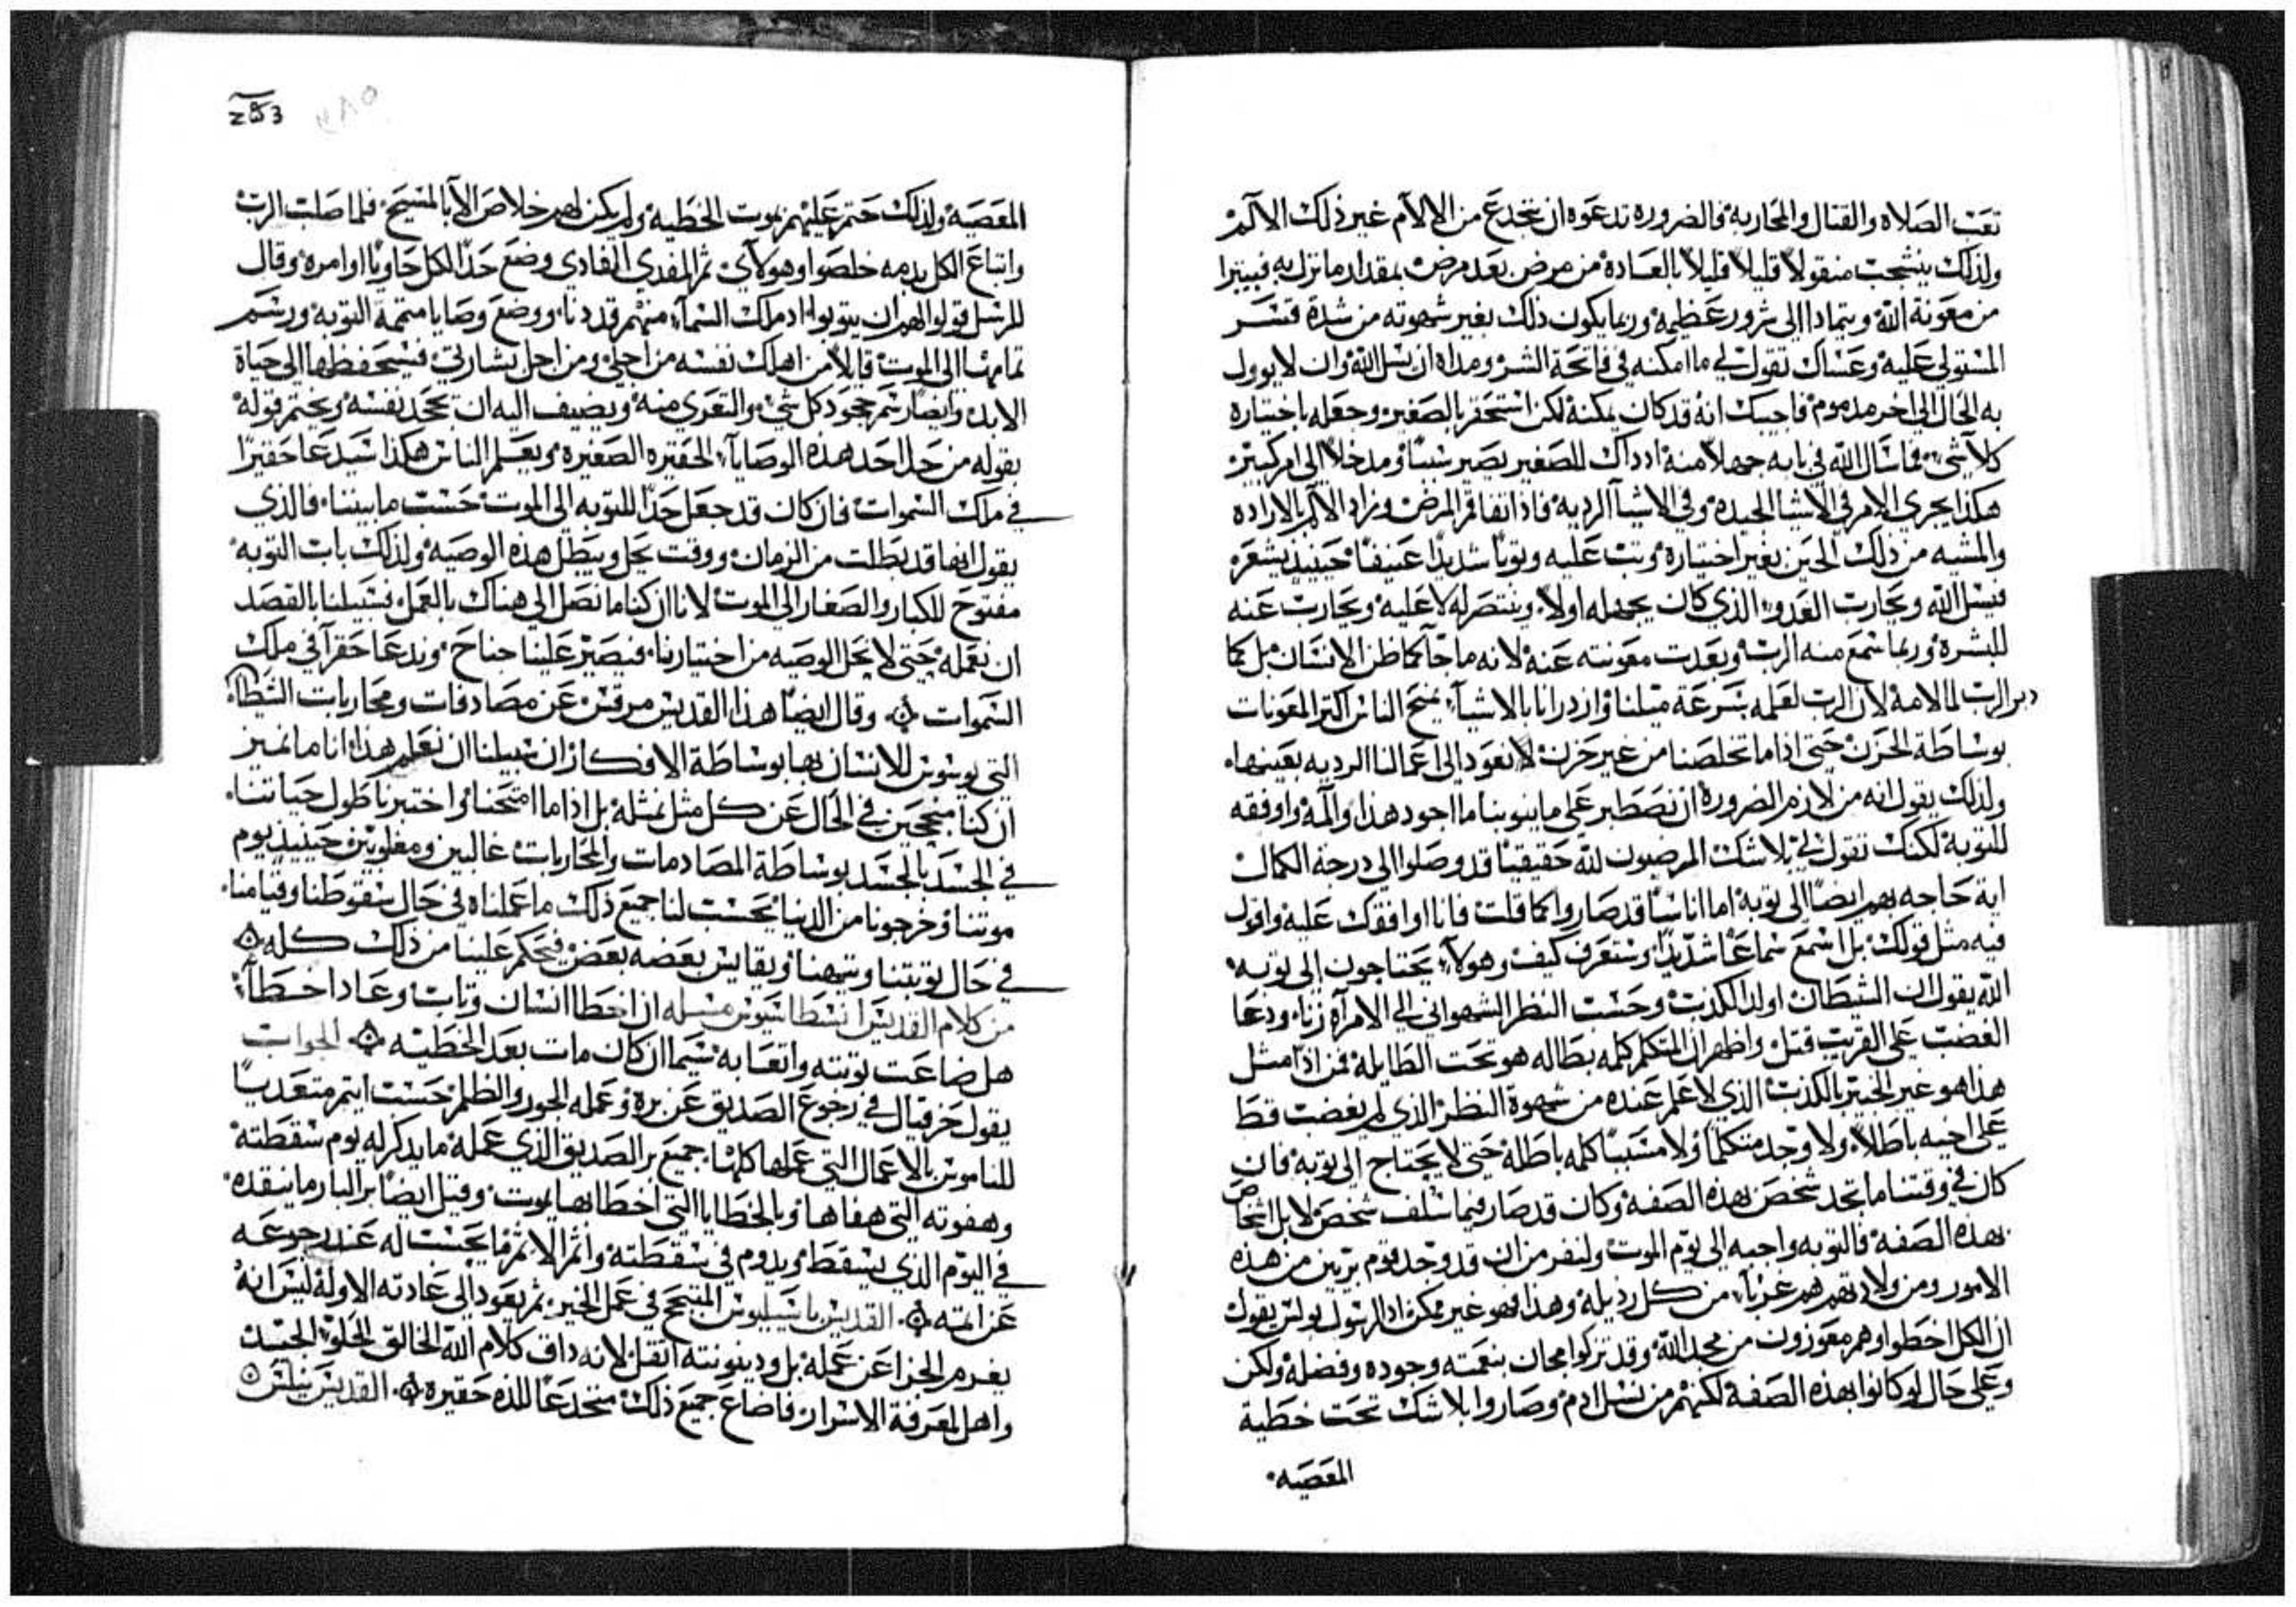 تعب الصلاه والقتال والمحاربه فالضروره تدعوه ان يخدع من الالام غير ذلك الالم
ولذلك ينشجب منقولاً قليلاً قليلاً بالعاده من مرض بعد مرض بمقدار ما نزل به فيتبرا
من معونة الله ويتمادا الى شرور عظيمه وربما يكون ذلك بغير شهوته من شدة قسر
المستولي عليه وعساك تقول لي ما امكنه في فاتحة الشر ومداه ان يسل الله وان لا يوول
به الحال الى اخر مذموم فاجيبك انه قد كان يمكنه لكن استحقر بالصغير وجعله باختياره
كلاشي فما سال الله في بابه جهلاً منه اذ ذاك للصغير يصير سبباً ومدخلاً الى امر كبير
هكذا يجري الامر في الاشيا الجيده وفي الاشيا الرديه فاذا تفاقم المرض وزاد الالم بالاراده
والمشيه من ذلك الحين بغير اختياره وثب عليه وثوباً شديداً عنيفاً حينيذ يشعر
فيسل الله ويحارب العدو الذي كان يجهله اولاً وينتصر له لا عليه ويحارب عنه
للبشره وربما سمع منه الرب وبعدت معونته عنه لانه ما جا كما ظن الانسان بل كما
دبر الرب لمالامه لان الرب لعلمه بسرعة ميلنا وازدرانا بالاشيا يمنح الناس اكثر المعونات
بوساطة الحزن حتى اذا ما تخلصنا من غير حزن لا نعود الى اعمالنا الرديه بعينها
ولذلك يقول انه من لازم الضروره ان نصطبر على ما ينوبنا ما اجود هذا والمه واوفقه
للتوبه لكنك تقول لي بلا شك المرضيون لله حقيقيا قد وصلوا الى درجة الكمال
اية حاجه بهم ايضاً الى توبه اما اناساً قد صاروا كما قلت فانا اوافقك عليه واقول
فيه مثل قولك بل اسمع سماعاً شديداً وستعرف كيف وهولاء يحتاجون الى توبه
الله يقول ان الشيطان اولد الكذب وحسب النظر الشهواني الى الامراه زنا ودعا
الغضب على القريب قتل واظهر ان المتكلم كلمه بطاله هو تحت الطايله فمن اذاً مثل
هذا هو غير الخبير بالكذب الذي لا علم عنده من شهوة النظر الذي لم يغضب قط
على اخيه باطلاً ولا وجد متكلماً ولا مسبباً كلمه باطله حتى لا يحتاج الى توبه فان
كان في وقتنا ما تجد شخص بهذه الصفه وكان قد صار فيما سلف شخص لا بل اشخاص
بهذه الصفه فالتوبه واجبه الى يوم الموت ولنفرض ان قد وجد قوم بريين من هذه
الامور ومن ولادتهم هم غربا من كل رذيله وهذا فهو غير ممكن اذ الرسول بولس يقول
ان الكل اخطوا وهم معوزون من مجد الله وقد تزكوا مجان بنعمته وجوده وفضله ولكن
وعلى حال لو كانوا بهذه الصفه لكنهم من نسل ادم وصاروا بلا شك تحت خطية
المعصيه
253
المعصيه ولذلك حتم عليهم بموت الخطيه ولم يكن لهم خلاص الا بالمسيح فلما صلب الرب
وابتاع الكل بدمه خلصوا وهولاء ثم المفدي الفادي وضع حداً لكل حاوياً اوامره وقال
للرسل قولوا لهم ان يتوبوا اذ ملك السماء منهم قد دنا ووضع وصايا متممة التوبه ورسم
تمامها الى الموت قايلاً من اهلك نفسه من اجلي ومن اجل بشارتي فسيحفظها الى حياة
الابد وايضاً رسم جحود كل شي والتعري منه ويضيف اليه ان يجحد نفسه ويختم قوله
بقوله من حل احد هذه الوصايا الحقيره الصغيره ويعلم الناس هكذا سيدعا حقيراً
في ملك السموات فان كان قد جعل حداً للتوبه الى الموت حسب ما بيننا فالذي
يقول انها قد بطلت من الزمان ووقت يحل ويبطل هذه الوصيه ولذلك باب التوبه
مفتوح للكبار والصغار الى الموت لانا ان كنا ما نصل الى هناك بالعمل فسبيلنا بالقصد
ان نعمله حتى لا نحل الوصيه من اختيارنا فيصير علينا جناح وندعا حقرا في ملك
السموات وقال ايضاً هذا القديس مرقس عن مصادفات ومحاربات الشيطان
التي يوسوس للانسان بها بوساطة الافكار ان سبيلنا ان نعلم هذا انا ما نميز
ان كنا منجحين في الحال عن كل مثل نمثله بل اذا ما امتحنا واختبرنا طول حياتنا
في الجسد بالجسد بوساطة المصادمات والمحاربات غالبين ومغلوبين حينيذ يوم
موتنا وخروجنا من الدنيا يحسب لنا جميع ذلك ما عملناه في حال سقوطنا وقيامنا
في حال توبتنا وتيهنا ويقايس بعضه بعض فيحكم علينا من ذلك كله
من كلام القديس انسطاسيوس مسله ان اخطا انسان وتاب وعاد اخطاء
هل ضاعت توبته واتعابه سيما ان كان مات بعد الخطيه الجواب
يقول حزقيال في رجوع الصديق عن بره وعمله الجور والظلم حسب ايتم متعدياً
للناموس بالاعمال التي عملها كلها جميع بر الصديق الذي عمله ما يذكر له يوم سقطته
وهفوته التي هفاها وبالخطايا التي اخطا بها يموت وقيل ايضاً بر البار ما ينقذه
في اليوم الذي يسقط ويدوم في سقطته واثم الاثم ما يحسب له عند رجوعه
عن اثمه القديس باسيليوس المنجح في عمل الخير ثم يعود الى عادته الاوله ليس انه
يغرم الجزا عن عمله بل ودينونته اثقل لانه ذاق كلام الله الخالق الحلو الجسد
واهل لمعرفة الاسرار فاضاع جميع ذلك منخدعاً للذه حقيره القديس نيلس